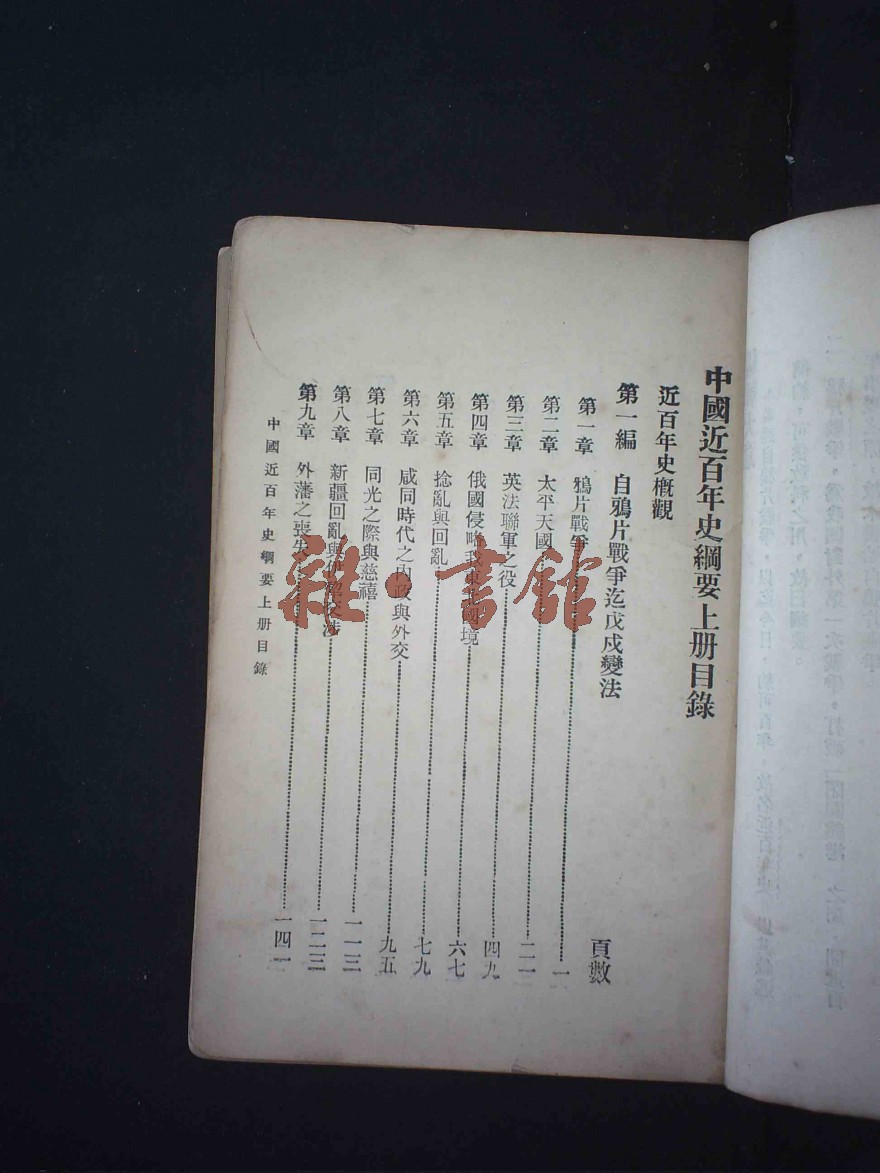 中國近百年史綱要上册目錄
近百年史概觀
第一編 自鴉片戰爭迄戊戌變法
頁數
第一章 鴉片戰爭 一
第二章 太平天國 二一
第三章 英法聯軍之役 四九
第四章 俄國侵略我東北國境 六七
第五章 捻亂與回亂 七九
第六章 咸同時代之內政與外交 九五
第七章 同光之際與慈禧 一一三
第八章 新疆回亂與伊犂交涉 一二三
第九章 外藩之喪失 一四一
中國近百年史綱要上册目錄
雜·書館